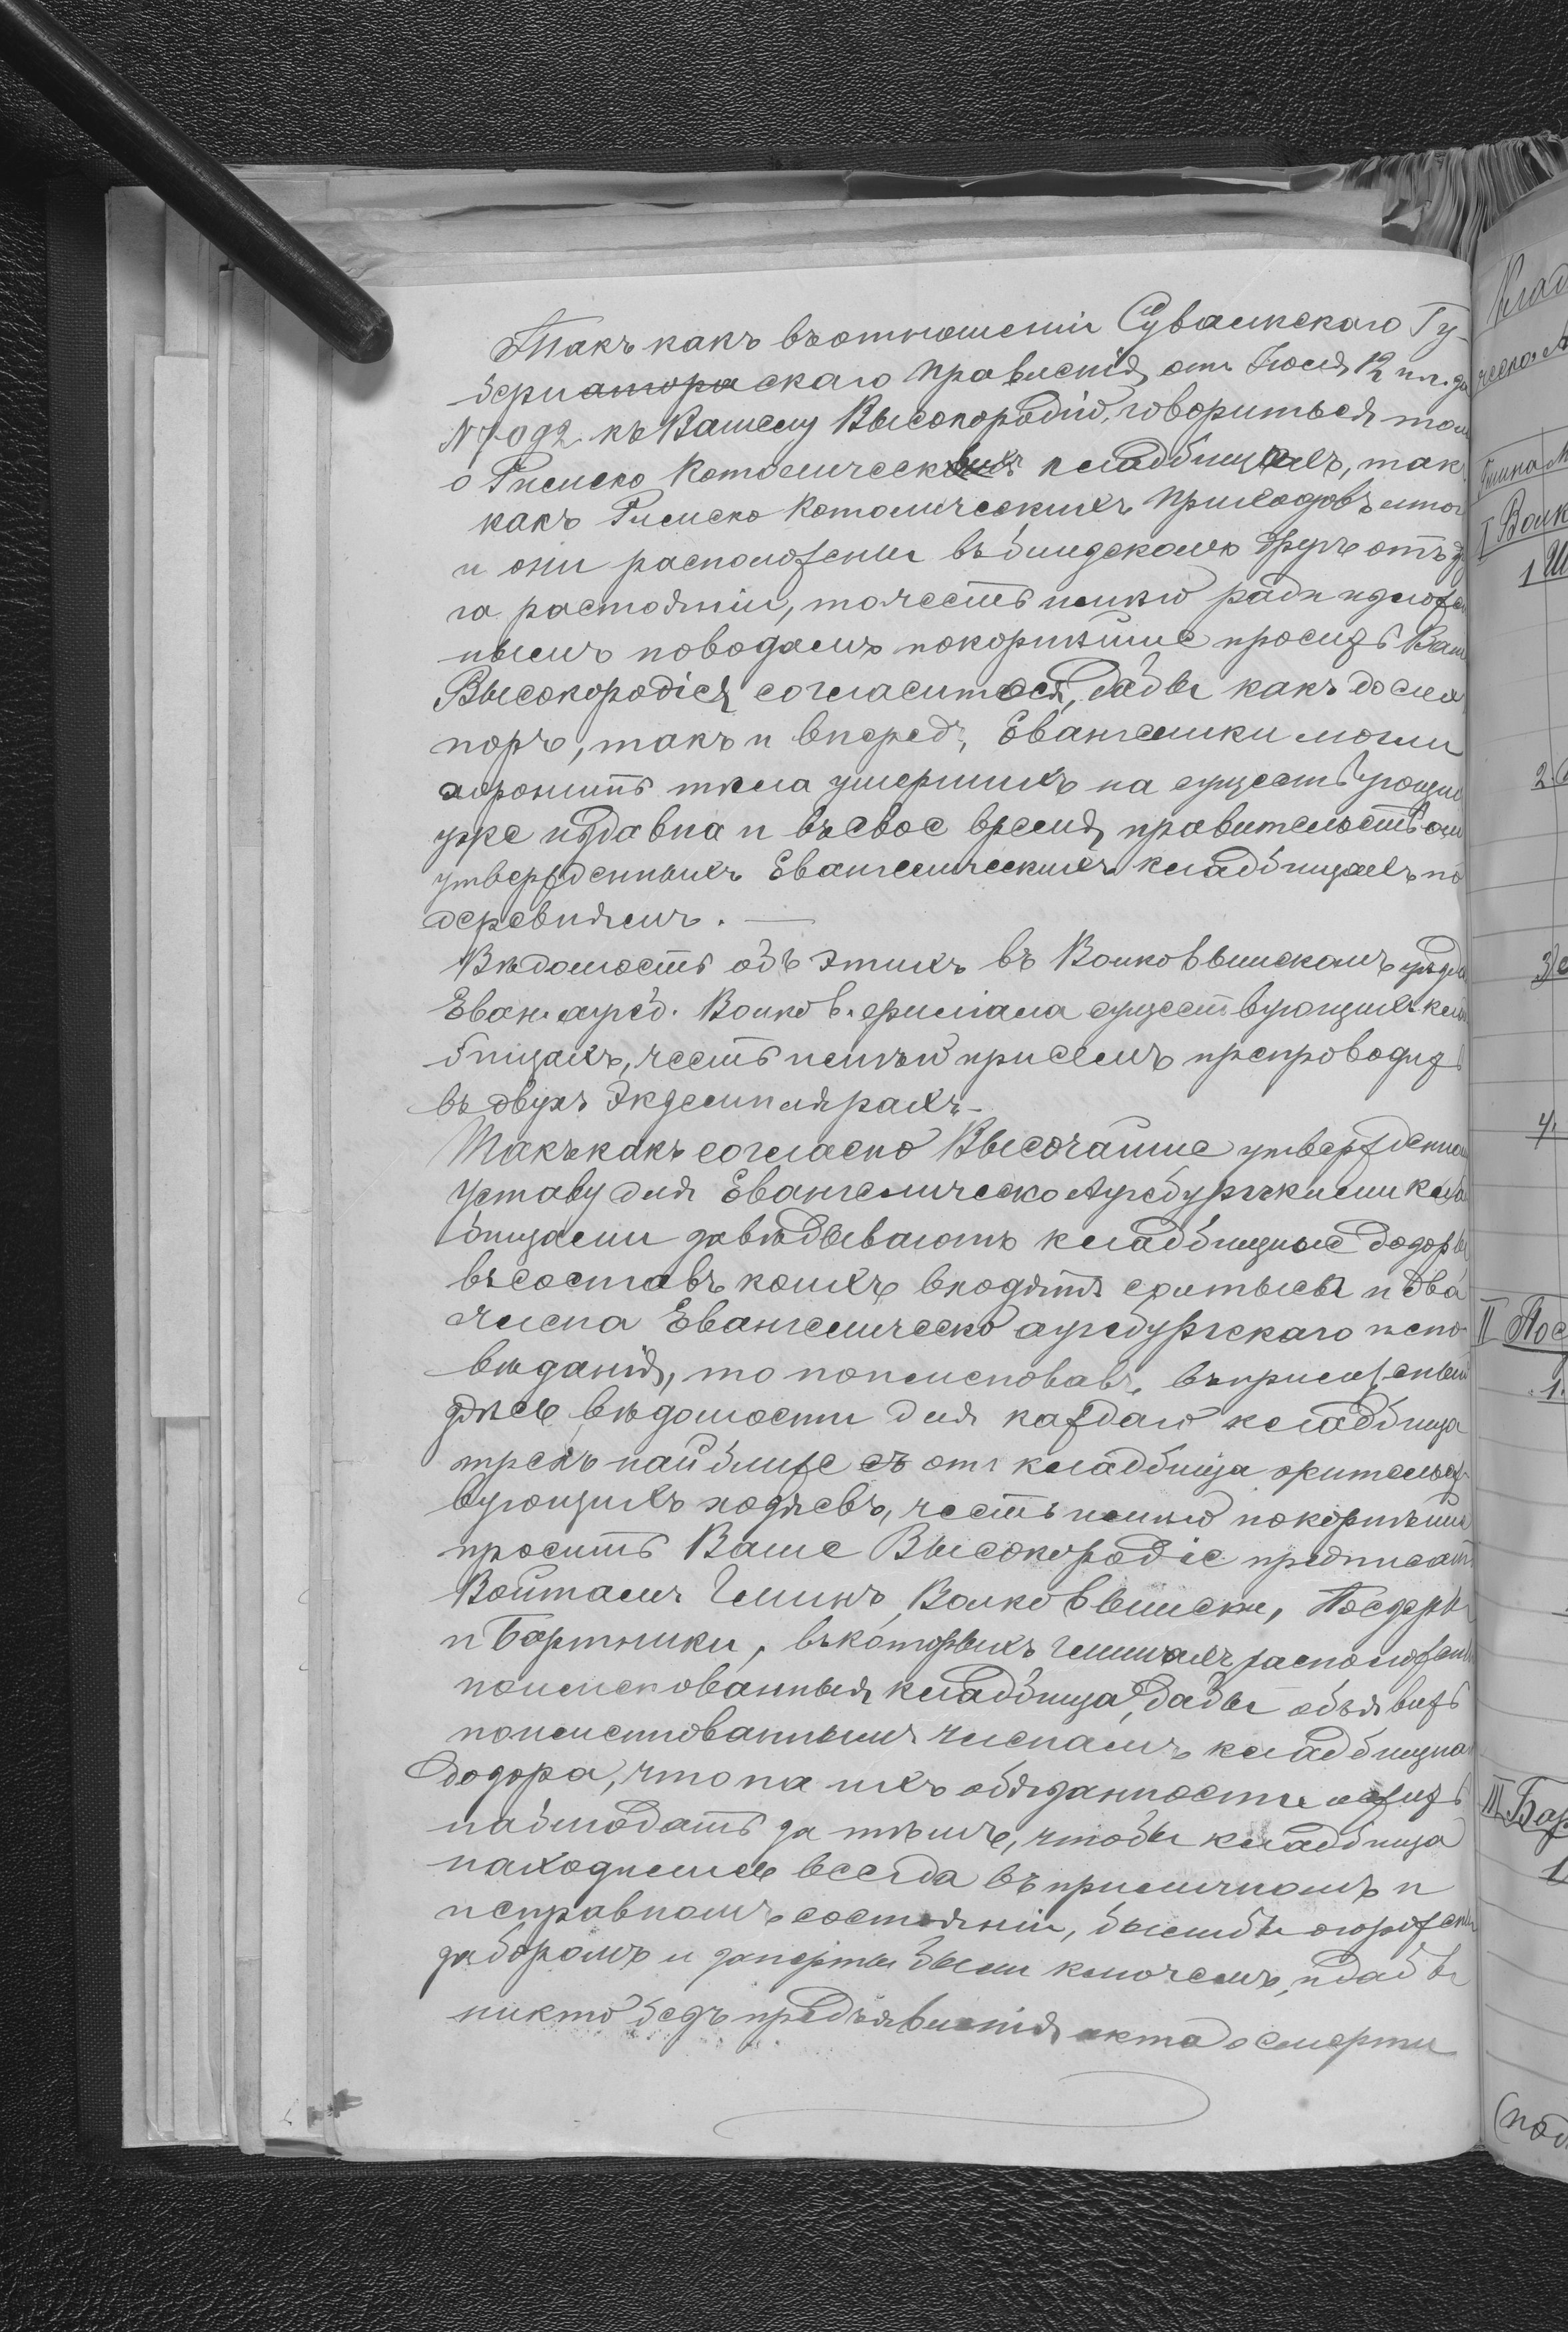 Такъ какъ въ отношеніи Сувалкскаго Гу-
берн скаго правленія отъ Іюля 12 ч. за
№ 7092 къ Вашему Высокородію, говориться толь
о Римско Католическихъ кладбищахъ, такъ
какъ Римско Католическихъ приходовъ много
и они расположены въ близкомъ другъ отъ др
га растояніи, то честь имѣю ради изложен
нымъ поводамъ покорнѣйше просить Ваше
Высокородіе согласиться, дабы какъ до сихъ
поръ, такъ и впередъ, Евангелики могли
хоронить тѣла умершихъ на существующихъ
уже издавна и въ свое время правительствомъ
утвержденныхъ Евангелическихъ кладбищахъ по
деревнямъ. —
Вѣдомость объ этихъ въ Волковышскомъ уѣздѣ
Еван. аугсб. Волков. филіала существующихъ клад
бищахъ, честь имѣю при семъ препроводить
въ двухъ экземплярахъ.
Такъ какъ согласно Высочайше утвержденно
Уставу для Евангелическо Аугсбургскими клад
бищами завѣдываютъ кладбищные дозоры
въ составъ коихъ входятъ солтысы и два
члена Евангелическо аугсбургскаго испо-
вѣданія, то поименовавъ, въ приложеной
здѣсь вѣдомости для каждаго кладбища
трехъ найближе отъ кладбища жительст-
вующихъ хозяевъ, честь имѣю покорнѣйше
просить Ваше Высокородіе предписать
Войтамъ Гминъ, Волковышки, Посдеры
и Бартники, въ которыхъ гминахъ расположены
поименованныя кладбища, дабы объявить
поименованнымъ членамъ кладбищна
дозора, что на ихъ обязанности лежитъ
наблюдать за тѣмъ, чтобы кладбища
находились всегда въ приличномъ и
исправномъ состояніи, были бы огорожены
заборомъ и заперты были ключемъ, и дабы
никто безъ предъявленія акта о смерти
Клад
I Волк
1 Ш
2.
3
4.
II Пос
1.
III Бар
1